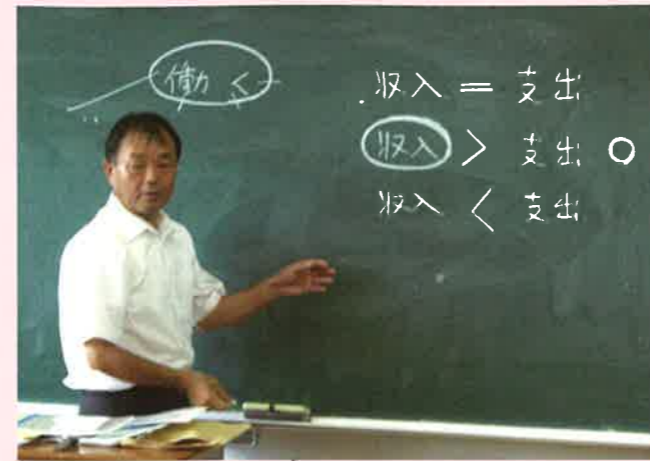 働く
収入 = 支出
収入 > 支出 ○
収入 < 支出